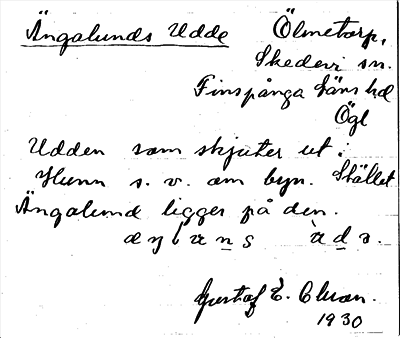 Ängalunds Udde Ölmetorp,
Skedevi sn.
Finspånga läns hd
Ögl
Udden som skjuter ut i
Hunn s. v. om byn. Stället
Ängalund ligger på den.
Gustaf E. Olson.
1930